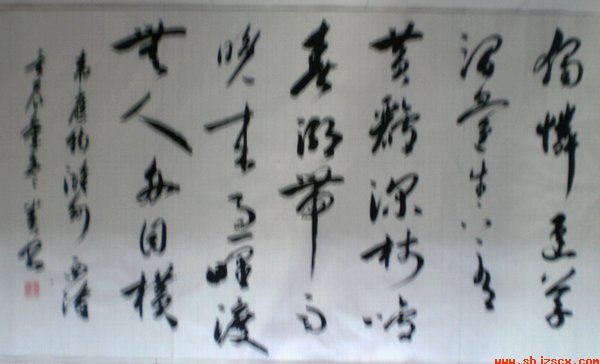 獨憐幽草
澗邊生上有
黄鸝深樹鳴
春潮帶雨
晚来急野渡
無人舟自横
韋應物滁州西澗
壬辰
www.shjzscx.com